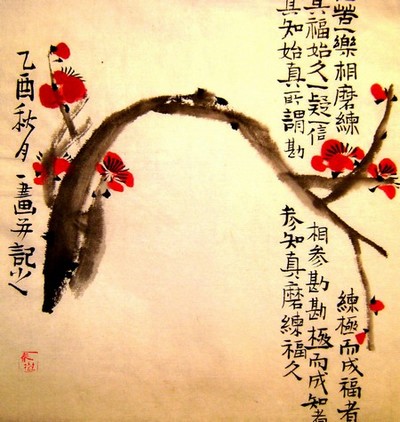 苦一樂相磨練
練極而成福者
其福始久一疑一信
相参勘勘極而成知者
其知始真所謂勘
参知真磨練福久
乙酉秋月一畫并記之